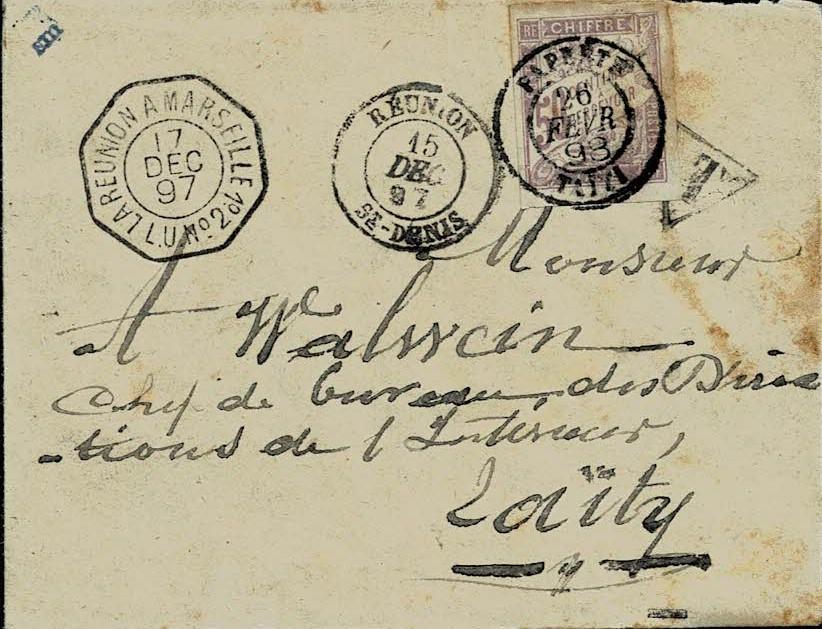 RF CHIFFRE
PAPEETE
26
FEVR
98
TAITI
LA REUNION A MARSEILLE
17
DEC
97
L.U. No. 2
REUNION
15
DEC
97
St-DENIS
T
Monsieur
A Walwein
Chef de bureau, des Direc
-tions de l'Intérieur,
Taïty